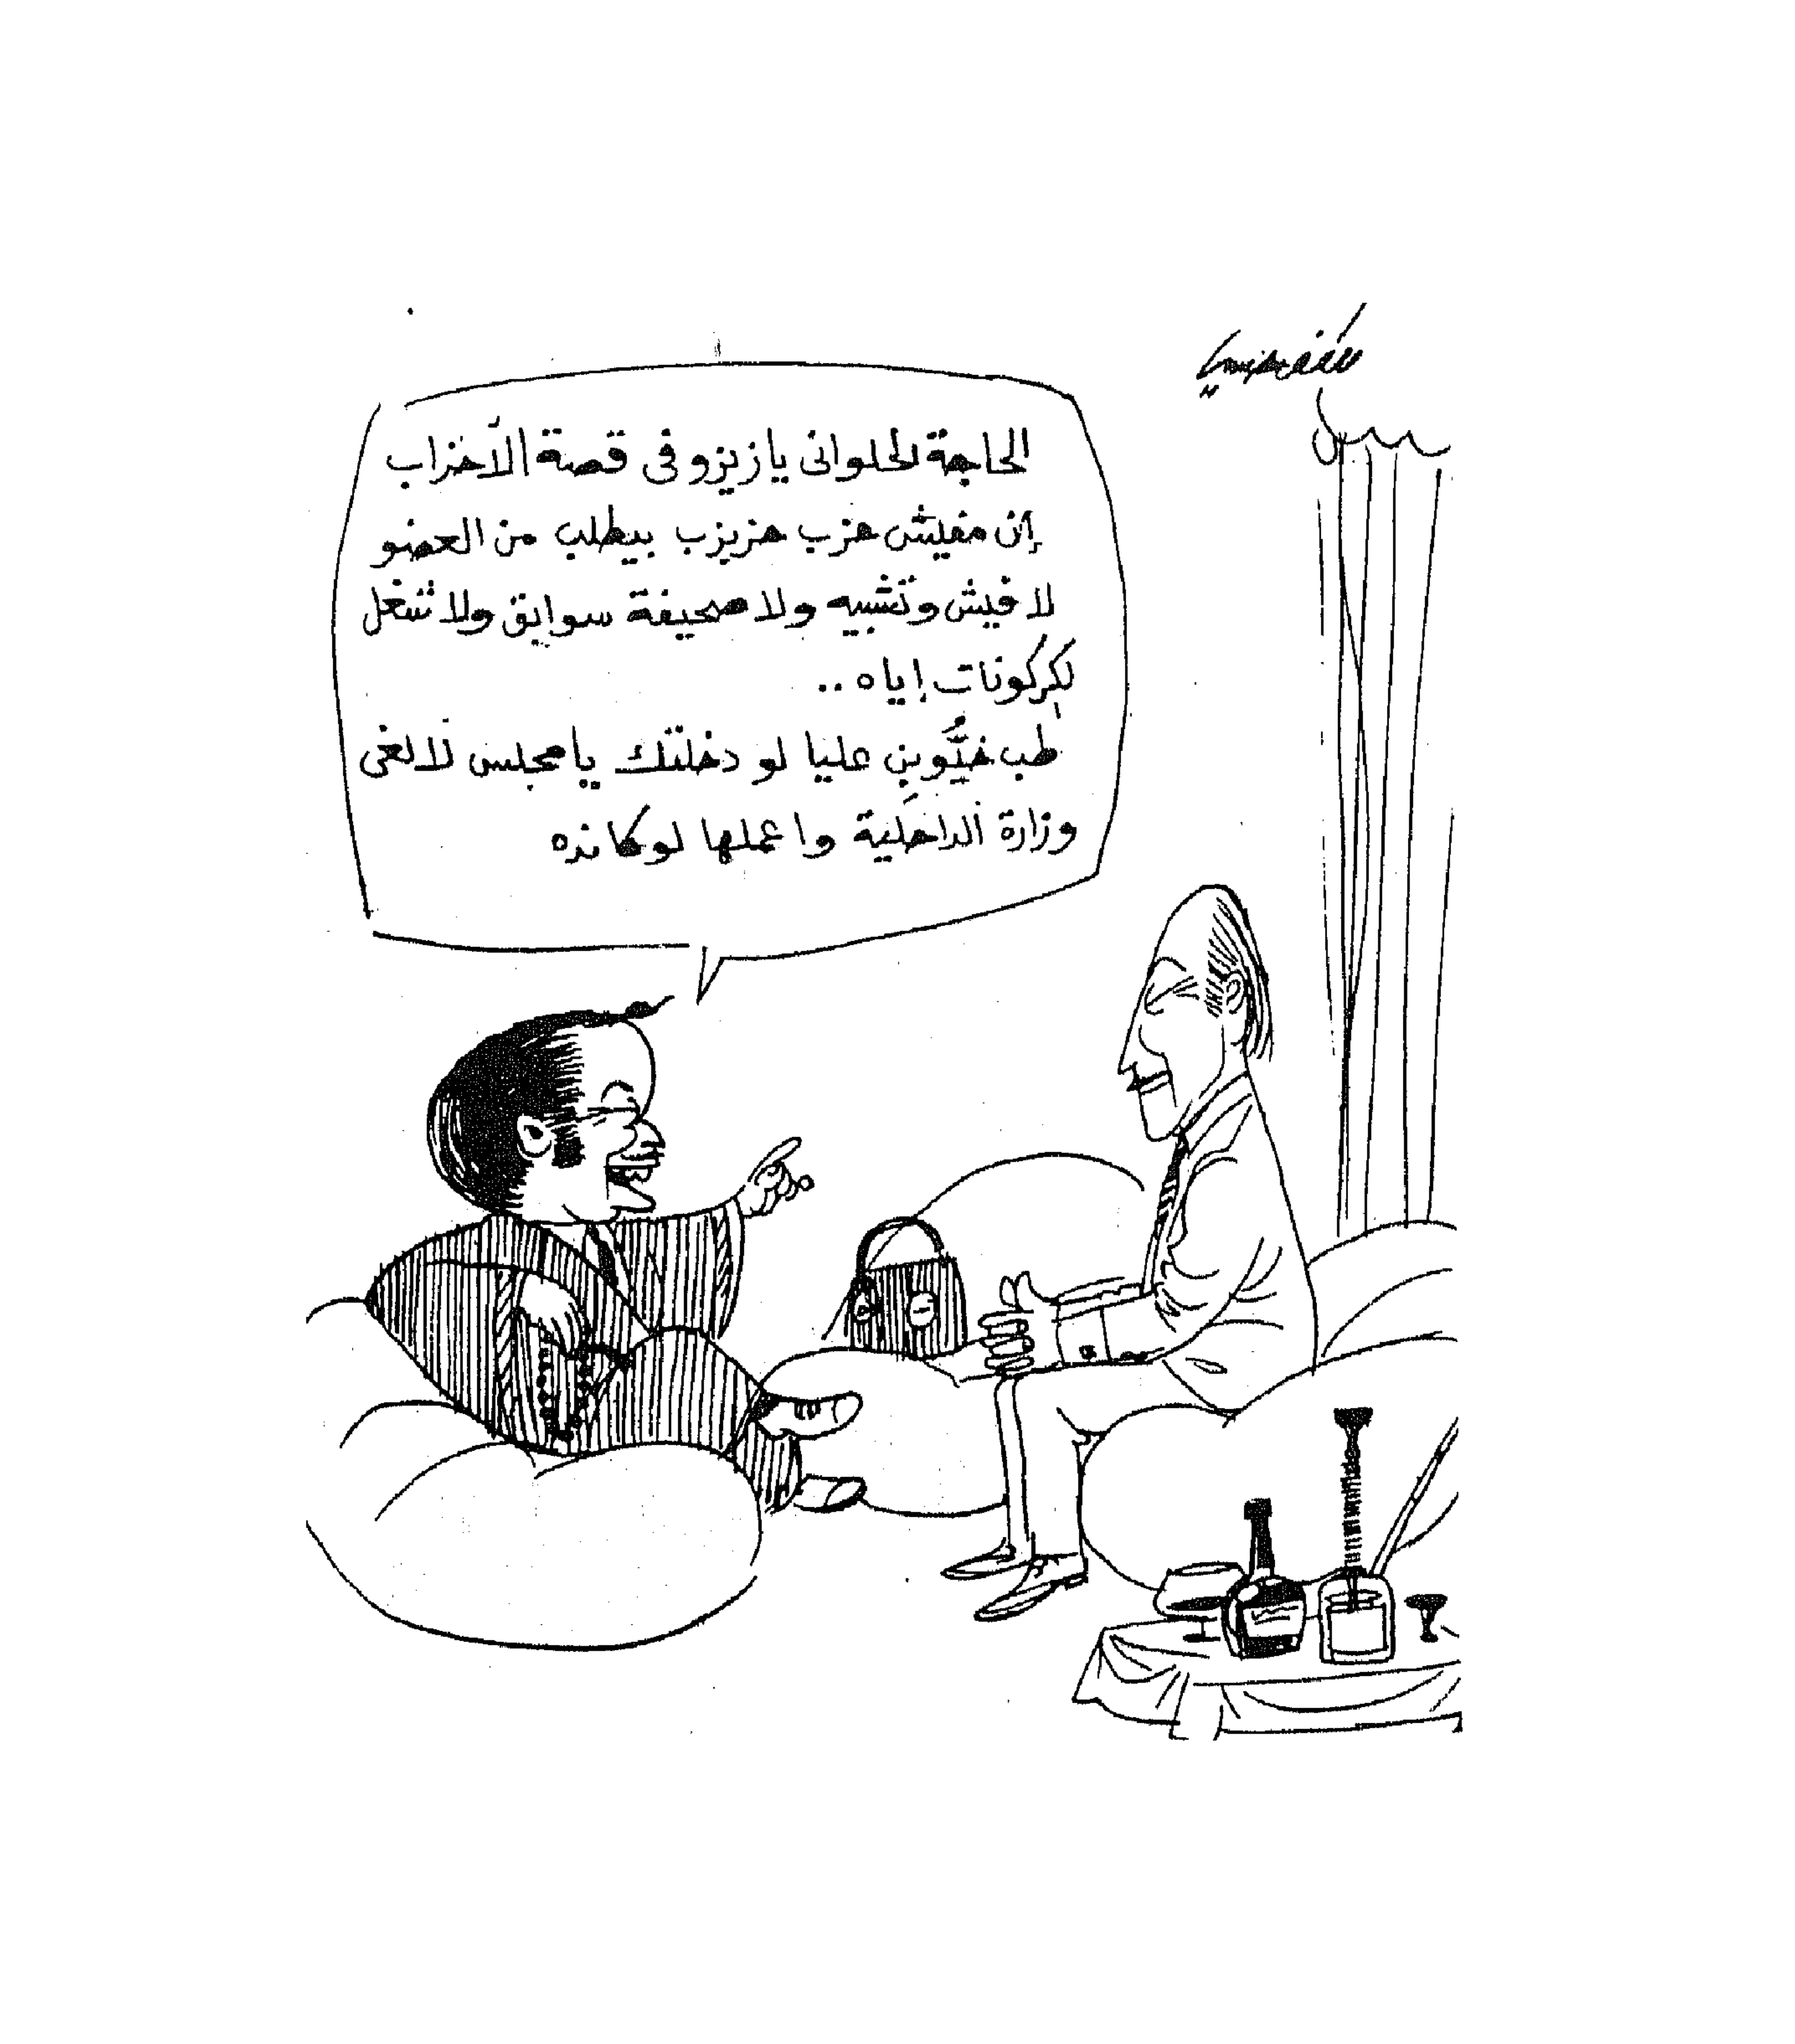 الحاجة لحلوانى يا زيزو فى قصة الأحزاب
إن مفيش حزب حزيزب بيطلب من العضو
لا فيش وتشبيه ولا صحيفة سوابق ولا شغل
لكركونات إياه ..
طب عليا لو دخلتك يا مجلس لالغى
وزارة الداخلية واعملها لوكانده